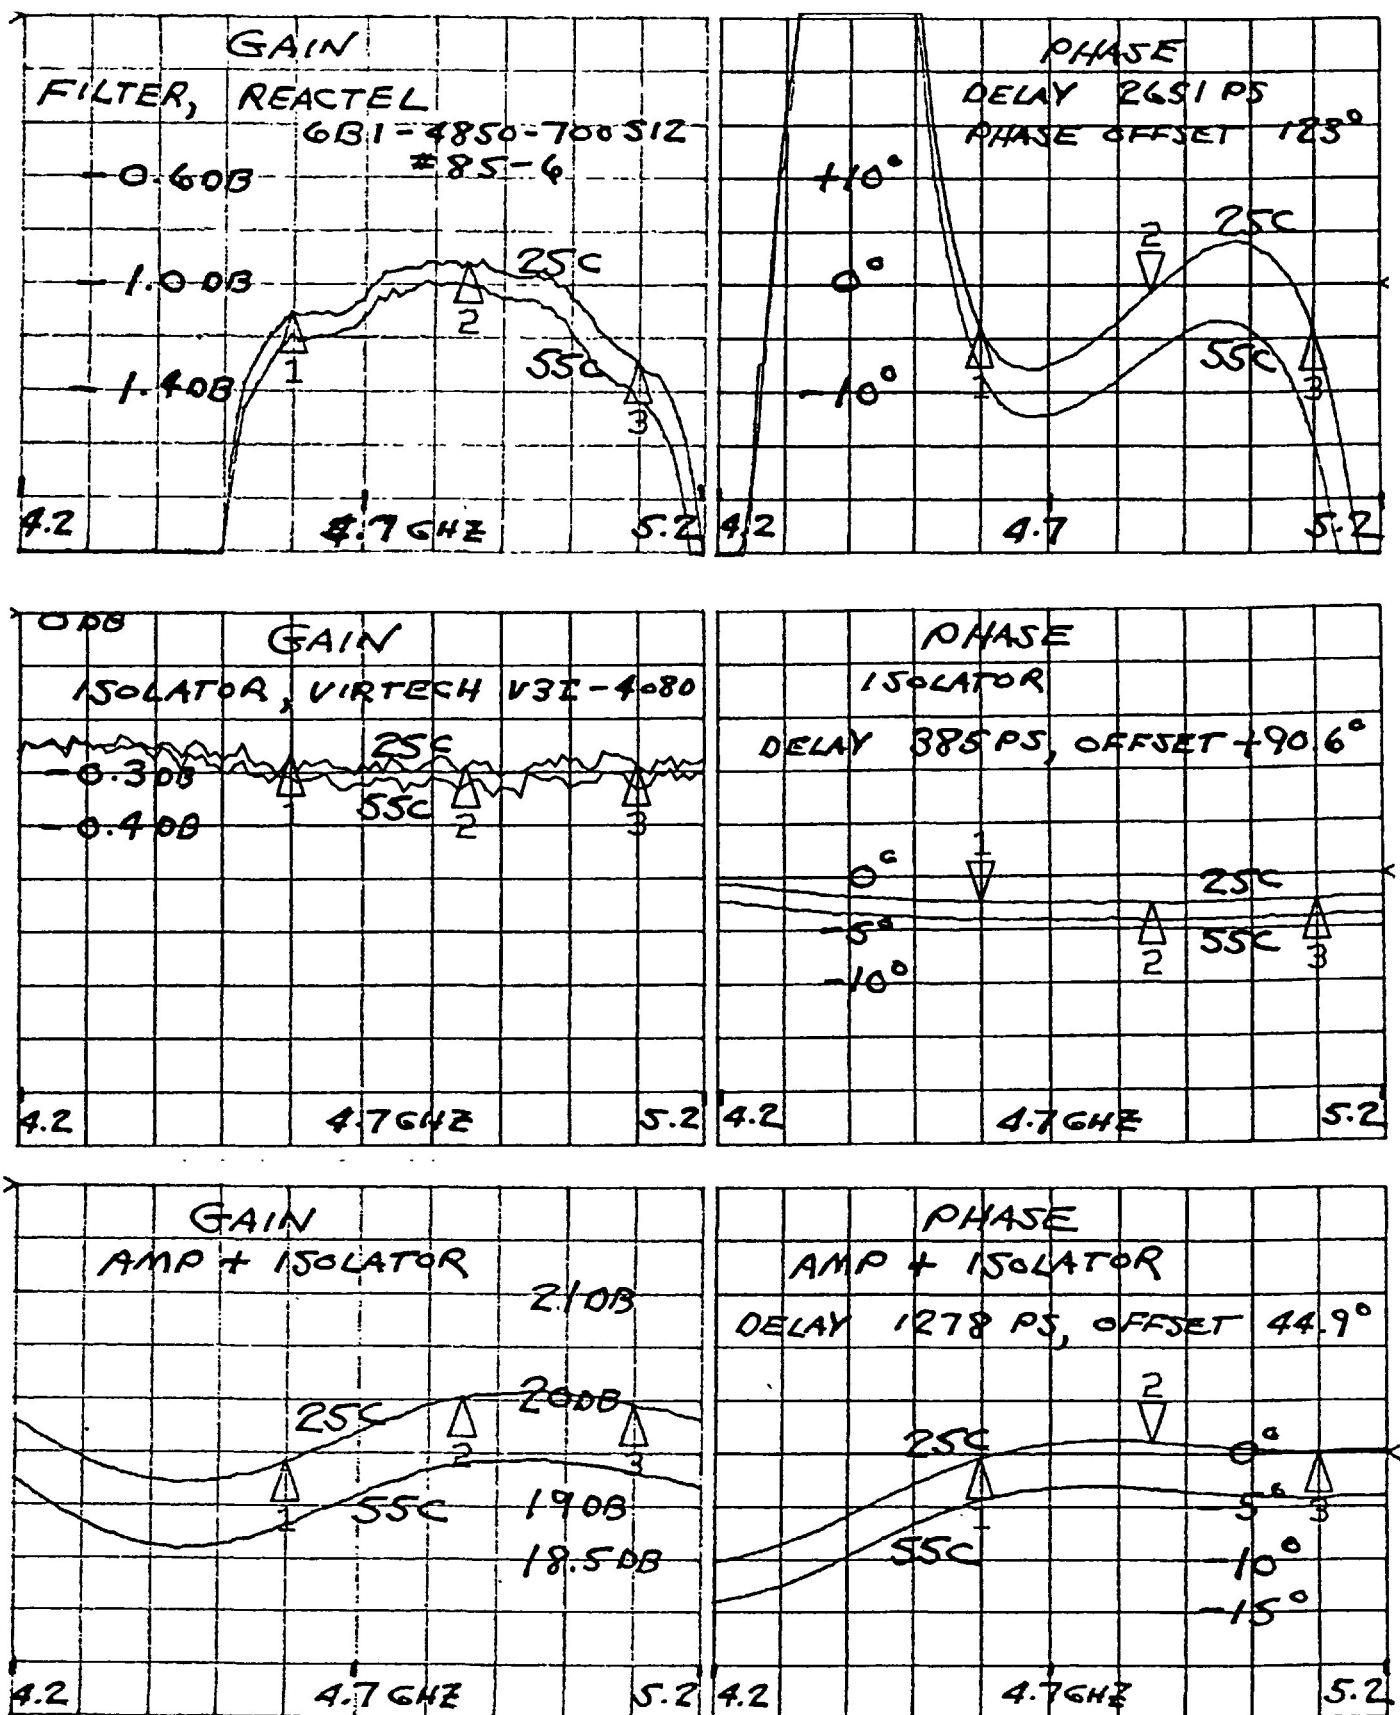 GAIN
FILTER, REACTEL
6B1-4850-700S12
#85-6
-0.6DB
25C
-1.0DB
2
55C
1
-1.4DB
3
4.2 4.7 GHZ 5.2
PHASE
DELAY 2651 PS
PHASE OFFSET 123°
+10°
2 25C
0°
55C
1 -10° 3
4.2 4.7 5.2
0 DB
GAIN
ISOLATOR, VIRTECH V3I-4080
25C
-0.3DB
1 55C
-0.4DB 2 3
4.2 4.7 GHZ 5.2
PHASE
ISOLATOR
DELAY 385 PS, OFFSET +90.6°
1
0° 25C
-5° 55C
2 3
-10°
4.2 4.7 GHZ 5.2
GAIN
AMP + ISOLATOR
21DB
20DB
25C
2 3
1 55C 19DB
18.5DB
4.2 4.7 GHZ 5.2
PHASE
AMP + ISOLATOR
DELAY 1278 PS, OFFSET 44.9°
2
25C 0°
1 -5° 3
55C -10°
-15°
4.2 4.7GHZ 5.2